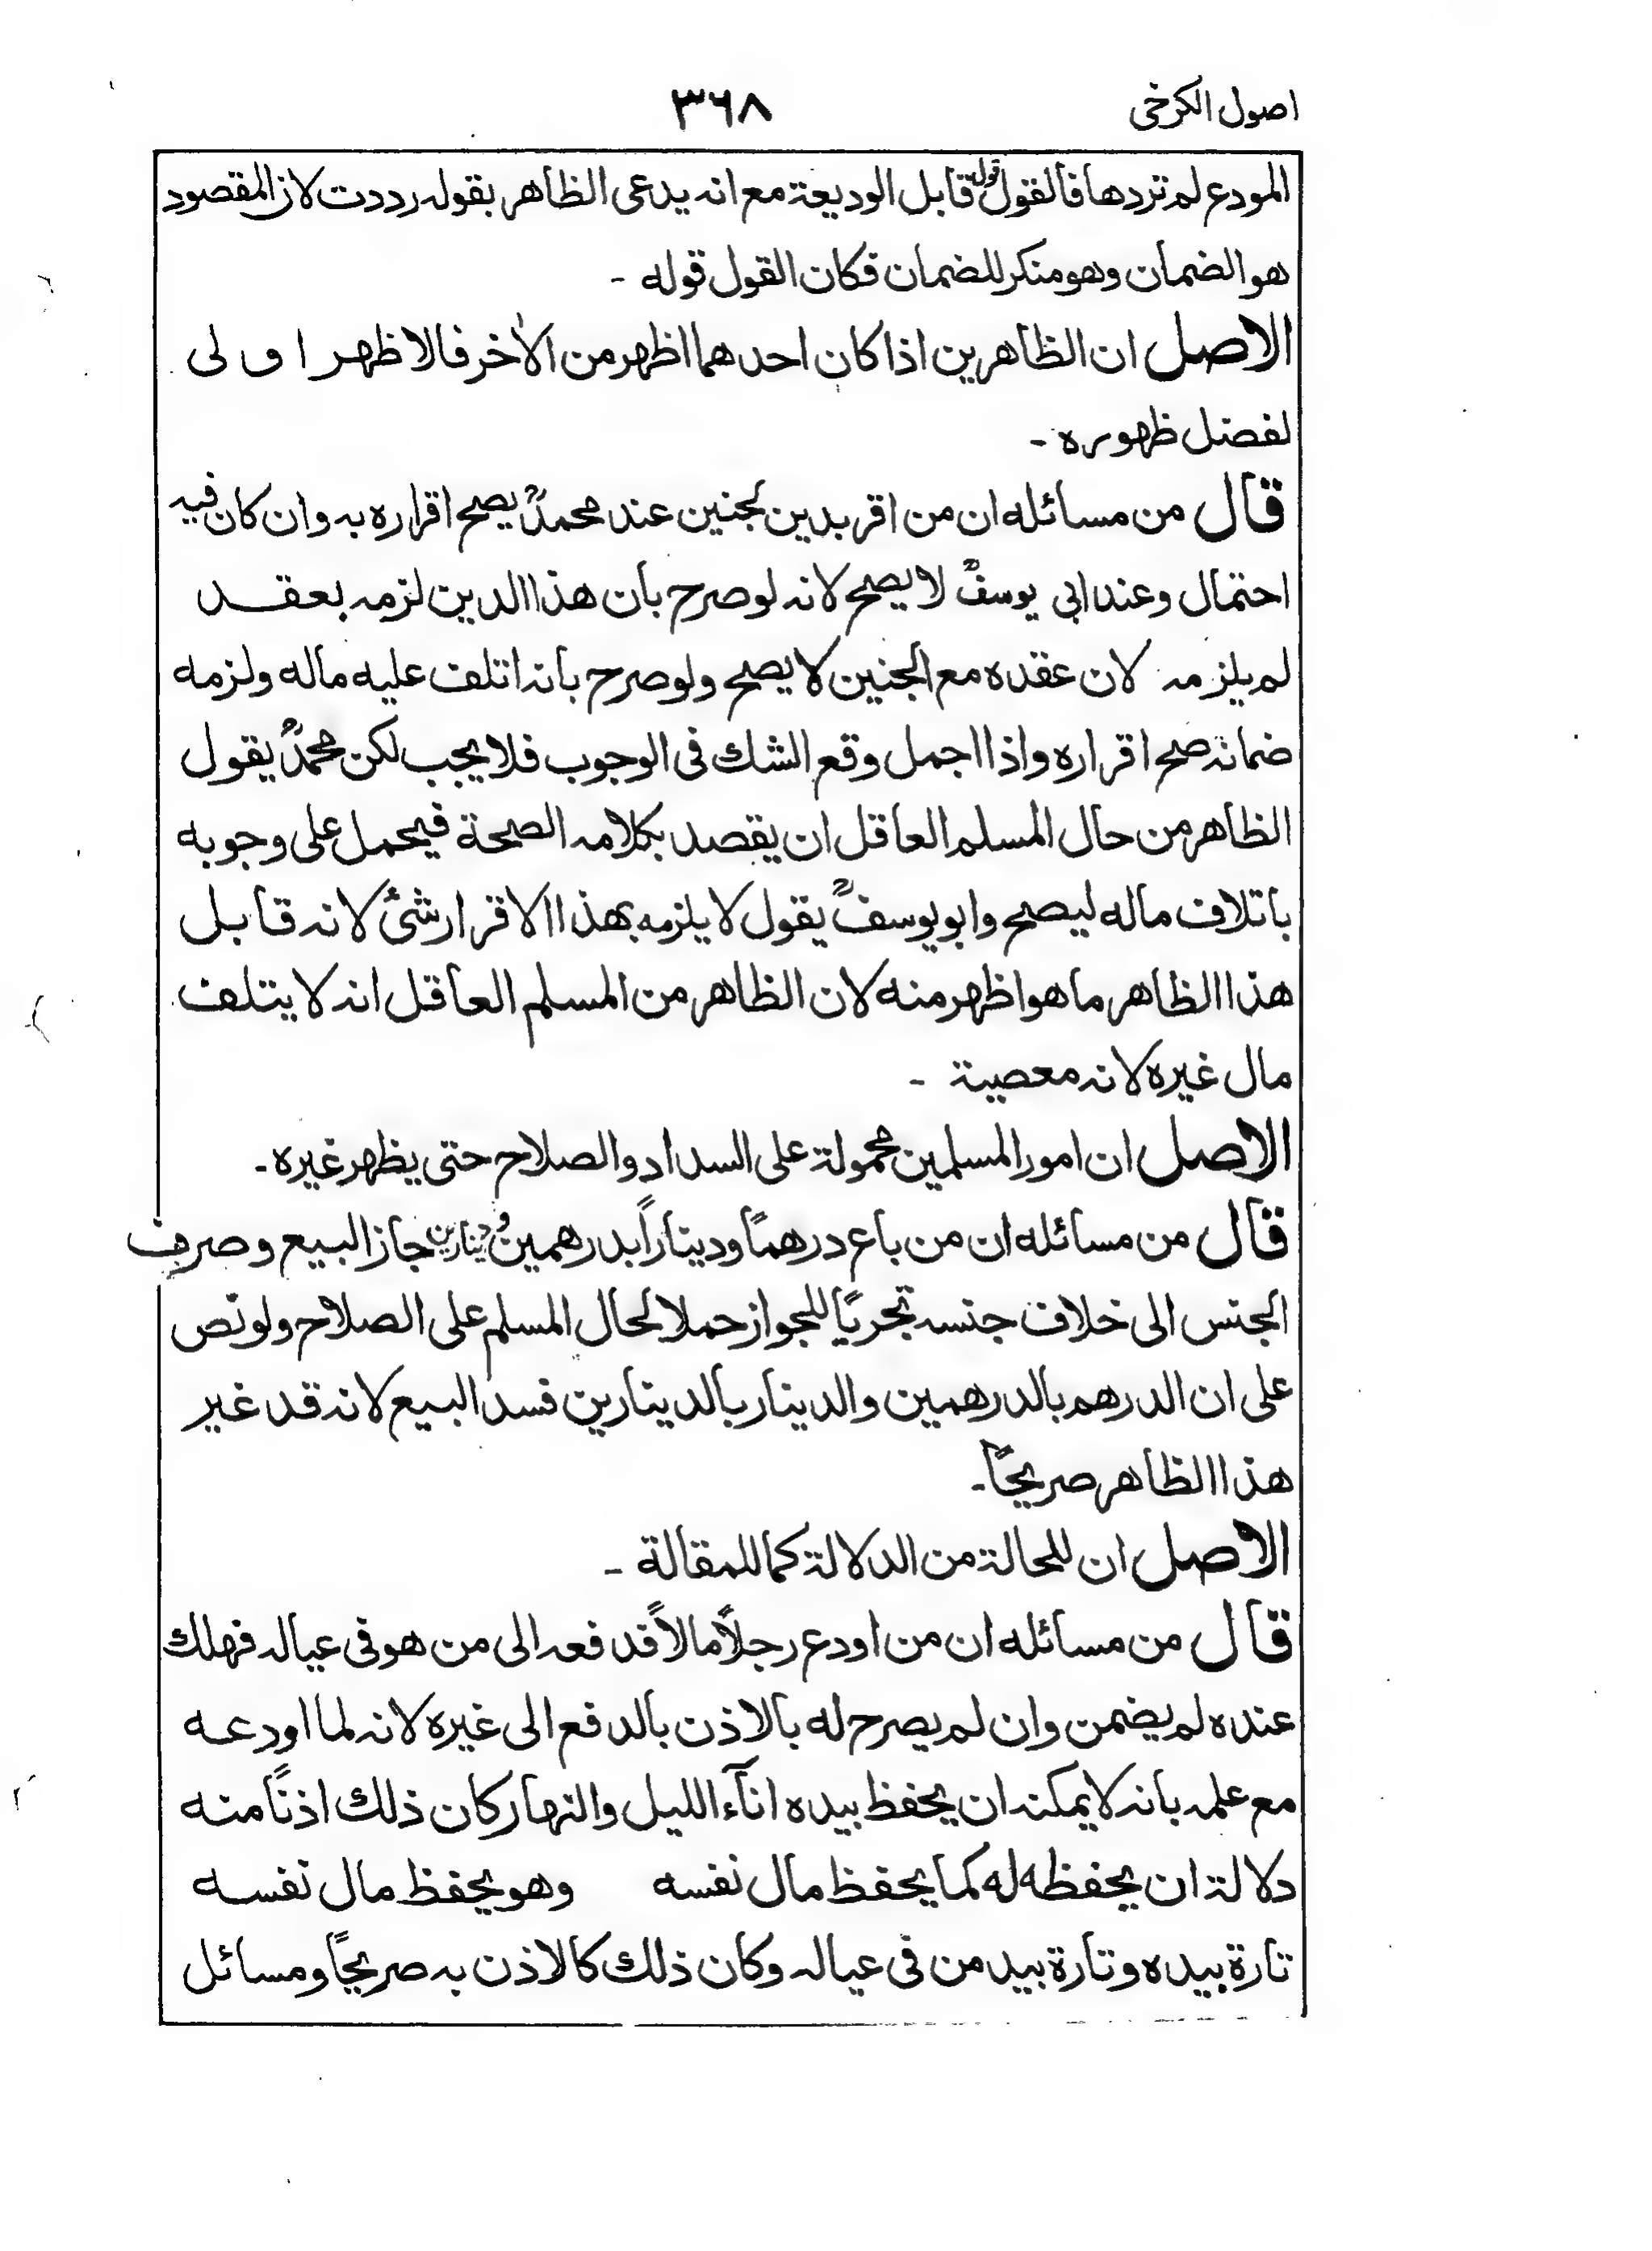 اصول الكرخى
٣٦٨
المودع لم تردها فالقول قول قابل الوديعة مع انه يدعى الظاهر بقوله رددت لان المقصود
هو الضمان وهو منكر للضمان فكان القول قوله -
الاصل ان الظاهرين اذا كان احدهما اظهر من الآخر فالاظهر اولى
لفضل ظهوره -
قال من مسائله ان من اقر بدين لجنين عند محمدؒ يصح اقراره به وان كان فيه
احتمال وعند ابى يوسفؒ لا يصح لانه لو صرح بان هذا الدين لزمه بعقد
لم يلزمه لان عقده مع الجنين لا يصح ولو صرح بانه اتلف عليه ماله ولزمه
ضمانه صح اقراره واذا اجمل وقع الشك فى الوجوب فلا يجب لكن محمدؒ يقول
الظاهر من حال المسلم العاقل ان يقصد بكلامه الصحة فيحمل على وجوبه
باتلاف ماله ليصح وابو يوسفؒ يقول لا يلزمه بهذا الاقرار شئ لانه قابل
هذا الظاهر ما هو اظهر منه لان الظاهر من المسلم العاقل انه لا يتلف
مال غيره لانه معصية -
الاصل ان امور المسلمين محمولة على السداد والصلاح حتى يظهر غيره -
قال من مسائله ان من باع درهمًا ودينارًا بدرهمين ودينارين جاز البيع وصرف
الجنس الى خلاف جنسه تحريًا للجواز حملا لحال المسلم على الصلاح ولو نص
على ان الدرهم بالدرهمين والدينار بالدينارين فسد البيع لانه قد غير
هذا الظاهر صريحًا -
الاصل ان للحالة من الدلالة كما للمقالة -
قال من مسائله ان من اودع رجلاً مالاً فدفعه الى من هو فى عياله فهلك
عنده لم يضمن وان لم يصرح له بالاذن بالدفع الى غيره لانه لما اودعه
مع علمه بانه لا يمكنه ان يحفظ بيده اناۤء الليل والنهار كان ذلك اذنًا منه
دلالة ان يحفظه له كما يحفظ مال نفسه وهو يحفظ مال نفسه
تارة بيده وتارة بيد من فى عياله وكان ذلك كالاذن به صريحًا ومسائل